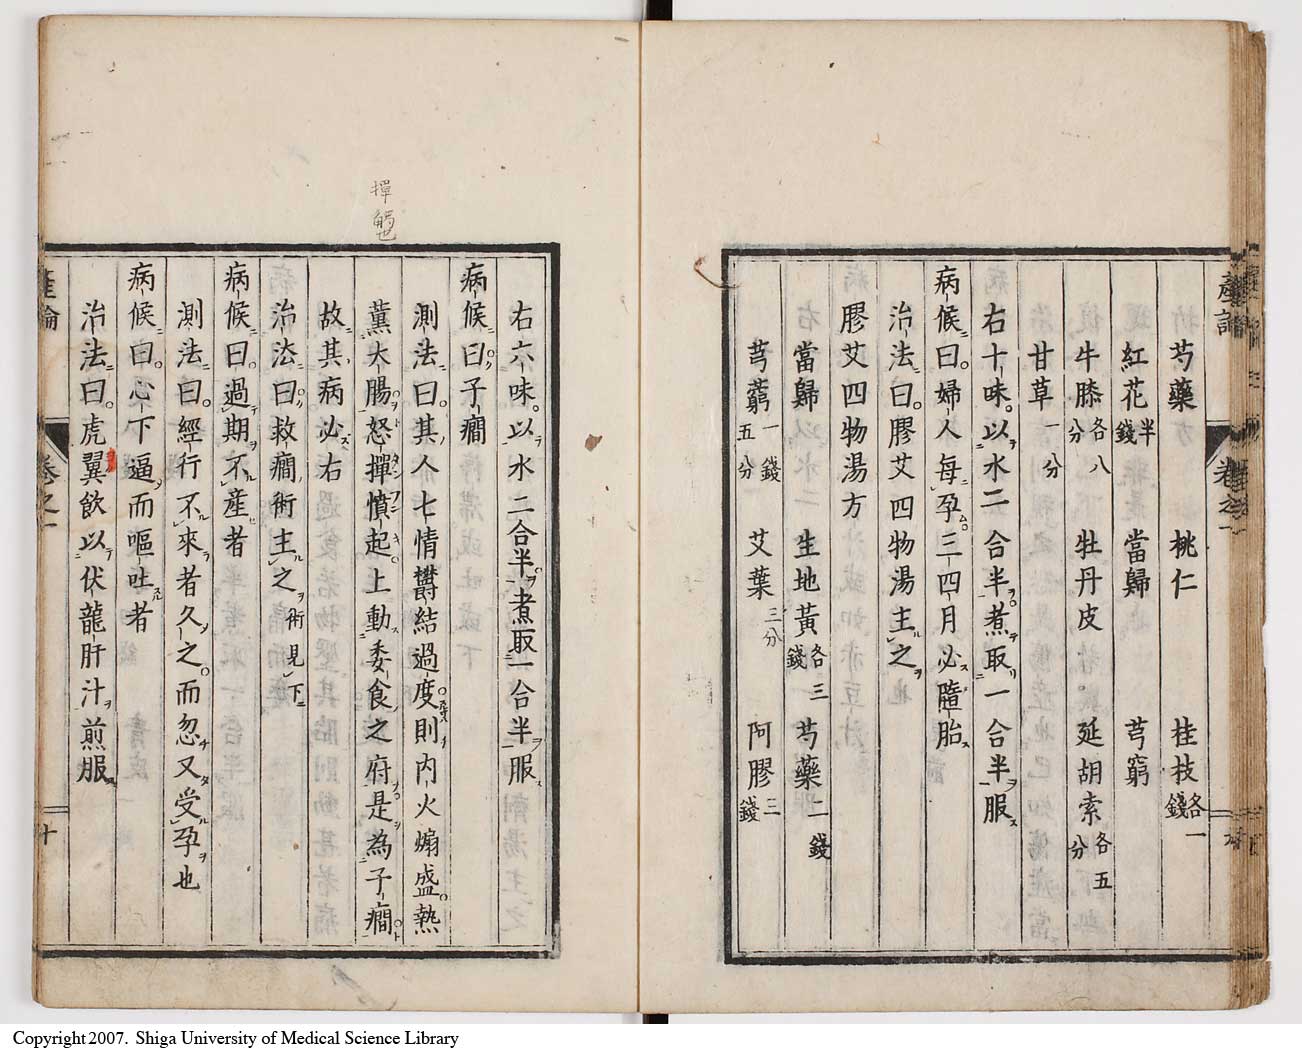 產論
卷之一
芍藥 桃仁 桂枝各一錢
紅花半錢 當歸 芎窮
牛膝各八分 牡丹皮 延胡索各五分
甘草一分
右十味。以水二合半煮取一合半服
病候曰婦人每孕三四月必墮胎
治法曰。膠艾四物湯主之
膠艾四物湯方
當歸 生地黃各三錢 芍藥二錢
芎藭一錢五分 艾葉三分 阿膠三錢
右六味。以水二合半煮取一合半服
病候曰子癇
測法曰其人七情欝結過度則內火煽盛熱
薰大腸怒撣憤起上動委食之府是為子癇
故其病必右
治法曰救癇術主之術見下
病候曰過期不產者
測法曰經行不來者久之而忽又受孕也
病候曰心下逼而嘔吐者
治法曰虎翼飲以伏龍肝汁煎服
產論
卷之一
十
撣
Copyright 2007. Shiga University of Medical Science Library